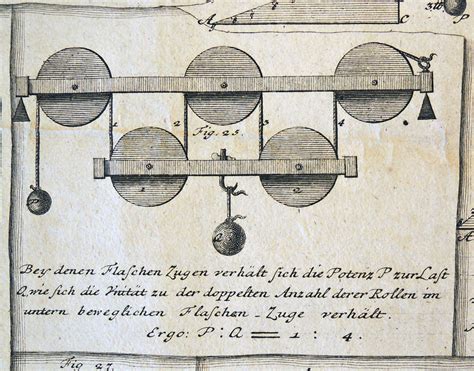 A C
3 ℔ P
1 2 3 4
Fig. 25.
1 2
P
Q
Bey denen Flaschen Zugen verhält sich die Potenz P zur Last
Q, wie sich die Unität zu der doppelten Anzahl derer Rollen im
untern beweglichen Flaschen-Zuge verhält.
Ergo: P : Q = 1 : 4.
Fig 27.